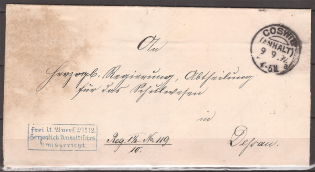 COSWIG
(ANHALT)
9 9
An
Herzogl. Regierung, Abtheilung
für das Schulwesen
in
Dessau.
Reg. 1/2 No 119
10.
Frei lt. Avers. 21112
Herzoglich Anhaltisches
Amtsgericht